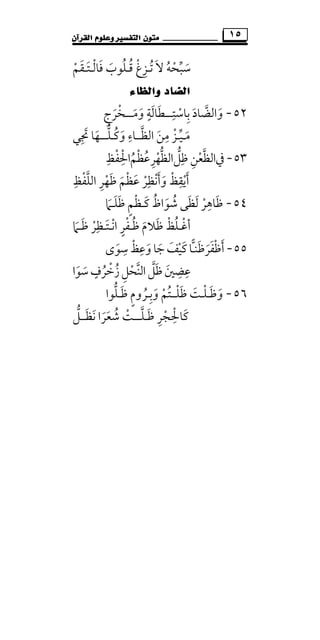 ١٥ متون التفسير وعلوم القرآن
سَبِّحْهُ لَا تُزِغْ قُلُوبَ فَالْتَقَمْ
الضاد والظاء
٥٢ - وَالضَّادَ بِاسْتِطَالَةٍ وَمَخْرَجِ
مَيِّزْ مِنَ الظَّاءِ وَكُلُّهَا تَجِي
٥٣ - فِي الظَّعْنِ ظِلُّ الظُّهْرِ عُظْمُ الْحِفْظِ
أَيْقِظْ وَأَنْظِرْ عَظْمَ ظَهْرِ اللَّفْظِ
٥٤ - ظَاهِرْ لَظَى شُوَاظُ كَظْمٍ ظَلَمَا
أغْلُظْ ظَلَامَ ظُفْرٍ انْتَظِرْ ظَمَا
٥٥ - أَظْفَرَ ظَنًّا كَيْفَ جَا وَعِظْ سِوَى
عِضِينَ ظَلَّ النَّحْلِ زُخْرُفٍ سَوَا
٥٦ - وَظَلْتَ ظَلْتُمْ وَبِرُومٍ ظَلُّوا
كَالْحِجْرِ ظَلَّتْ شُعَرَا نَظَلُّ